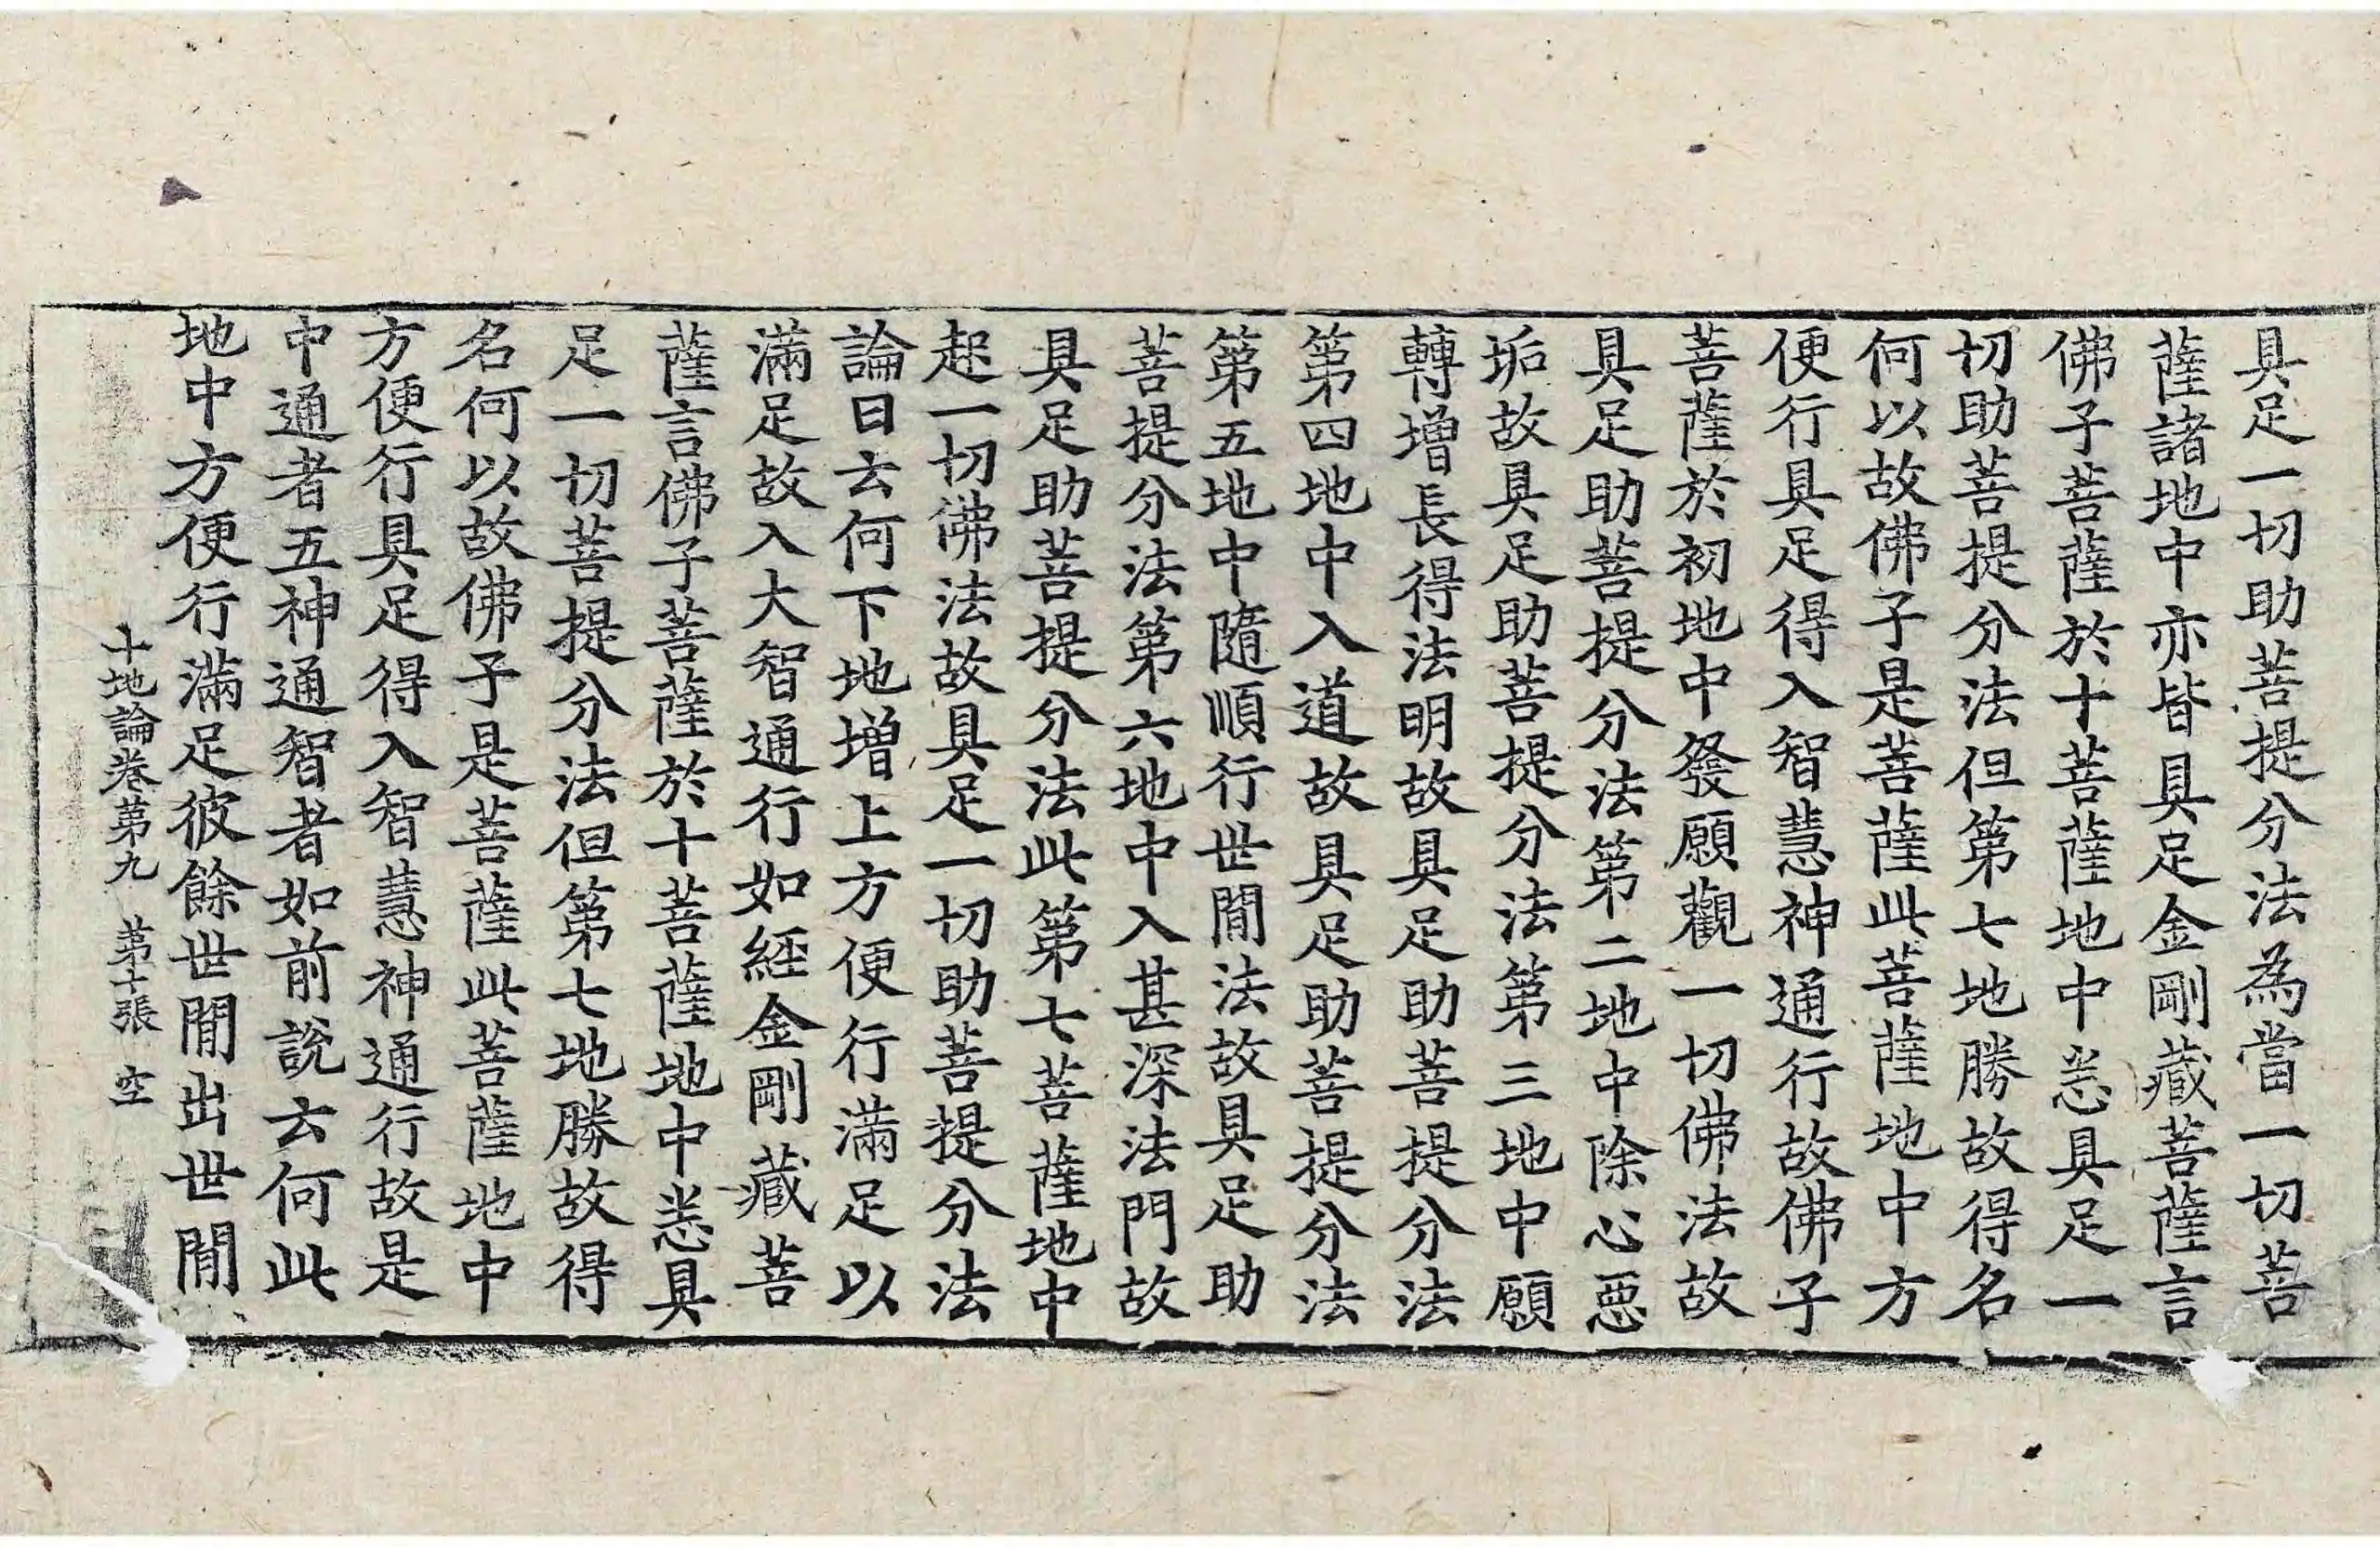 具足一切助菩提分法為當一切菩
薩諸地中亦皆具足金剛藏菩薩言
佛子菩薩於十菩薩地中悉具足一
切助菩提分法但第七地勝故得名
何以故佛子是菩薩此菩薩地中方
便行具足得入智慧神通行故佛子
菩薩於初地中發願觀一切佛法故
具足助菩提分法第二地中除心惡
垢故具足助菩提分法第三地中願
轉增長得法明故具足助菩提分法
第四地中入道故具足助菩提分法
第五地中隨順行世間法故具足助
菩提分法第六地中入甚深法門故
具足助菩提分法此第七菩薩地中
起一切佛法故具足一切助菩提分法
論曰云何下地增上方便行滿足以
滿足故入大智通行如經金剛藏菩
薩言佛子菩薩於十菩薩地中悉具
足一切菩提分法但第七地勝故得
名何以故佛子是菩薩此菩薩地中
方便行具足得入智慧神通行故是
中通者五神通智者如前說云何此
地中方便行滿足彼餘世間出世間
十地論卷第九 第十張 空